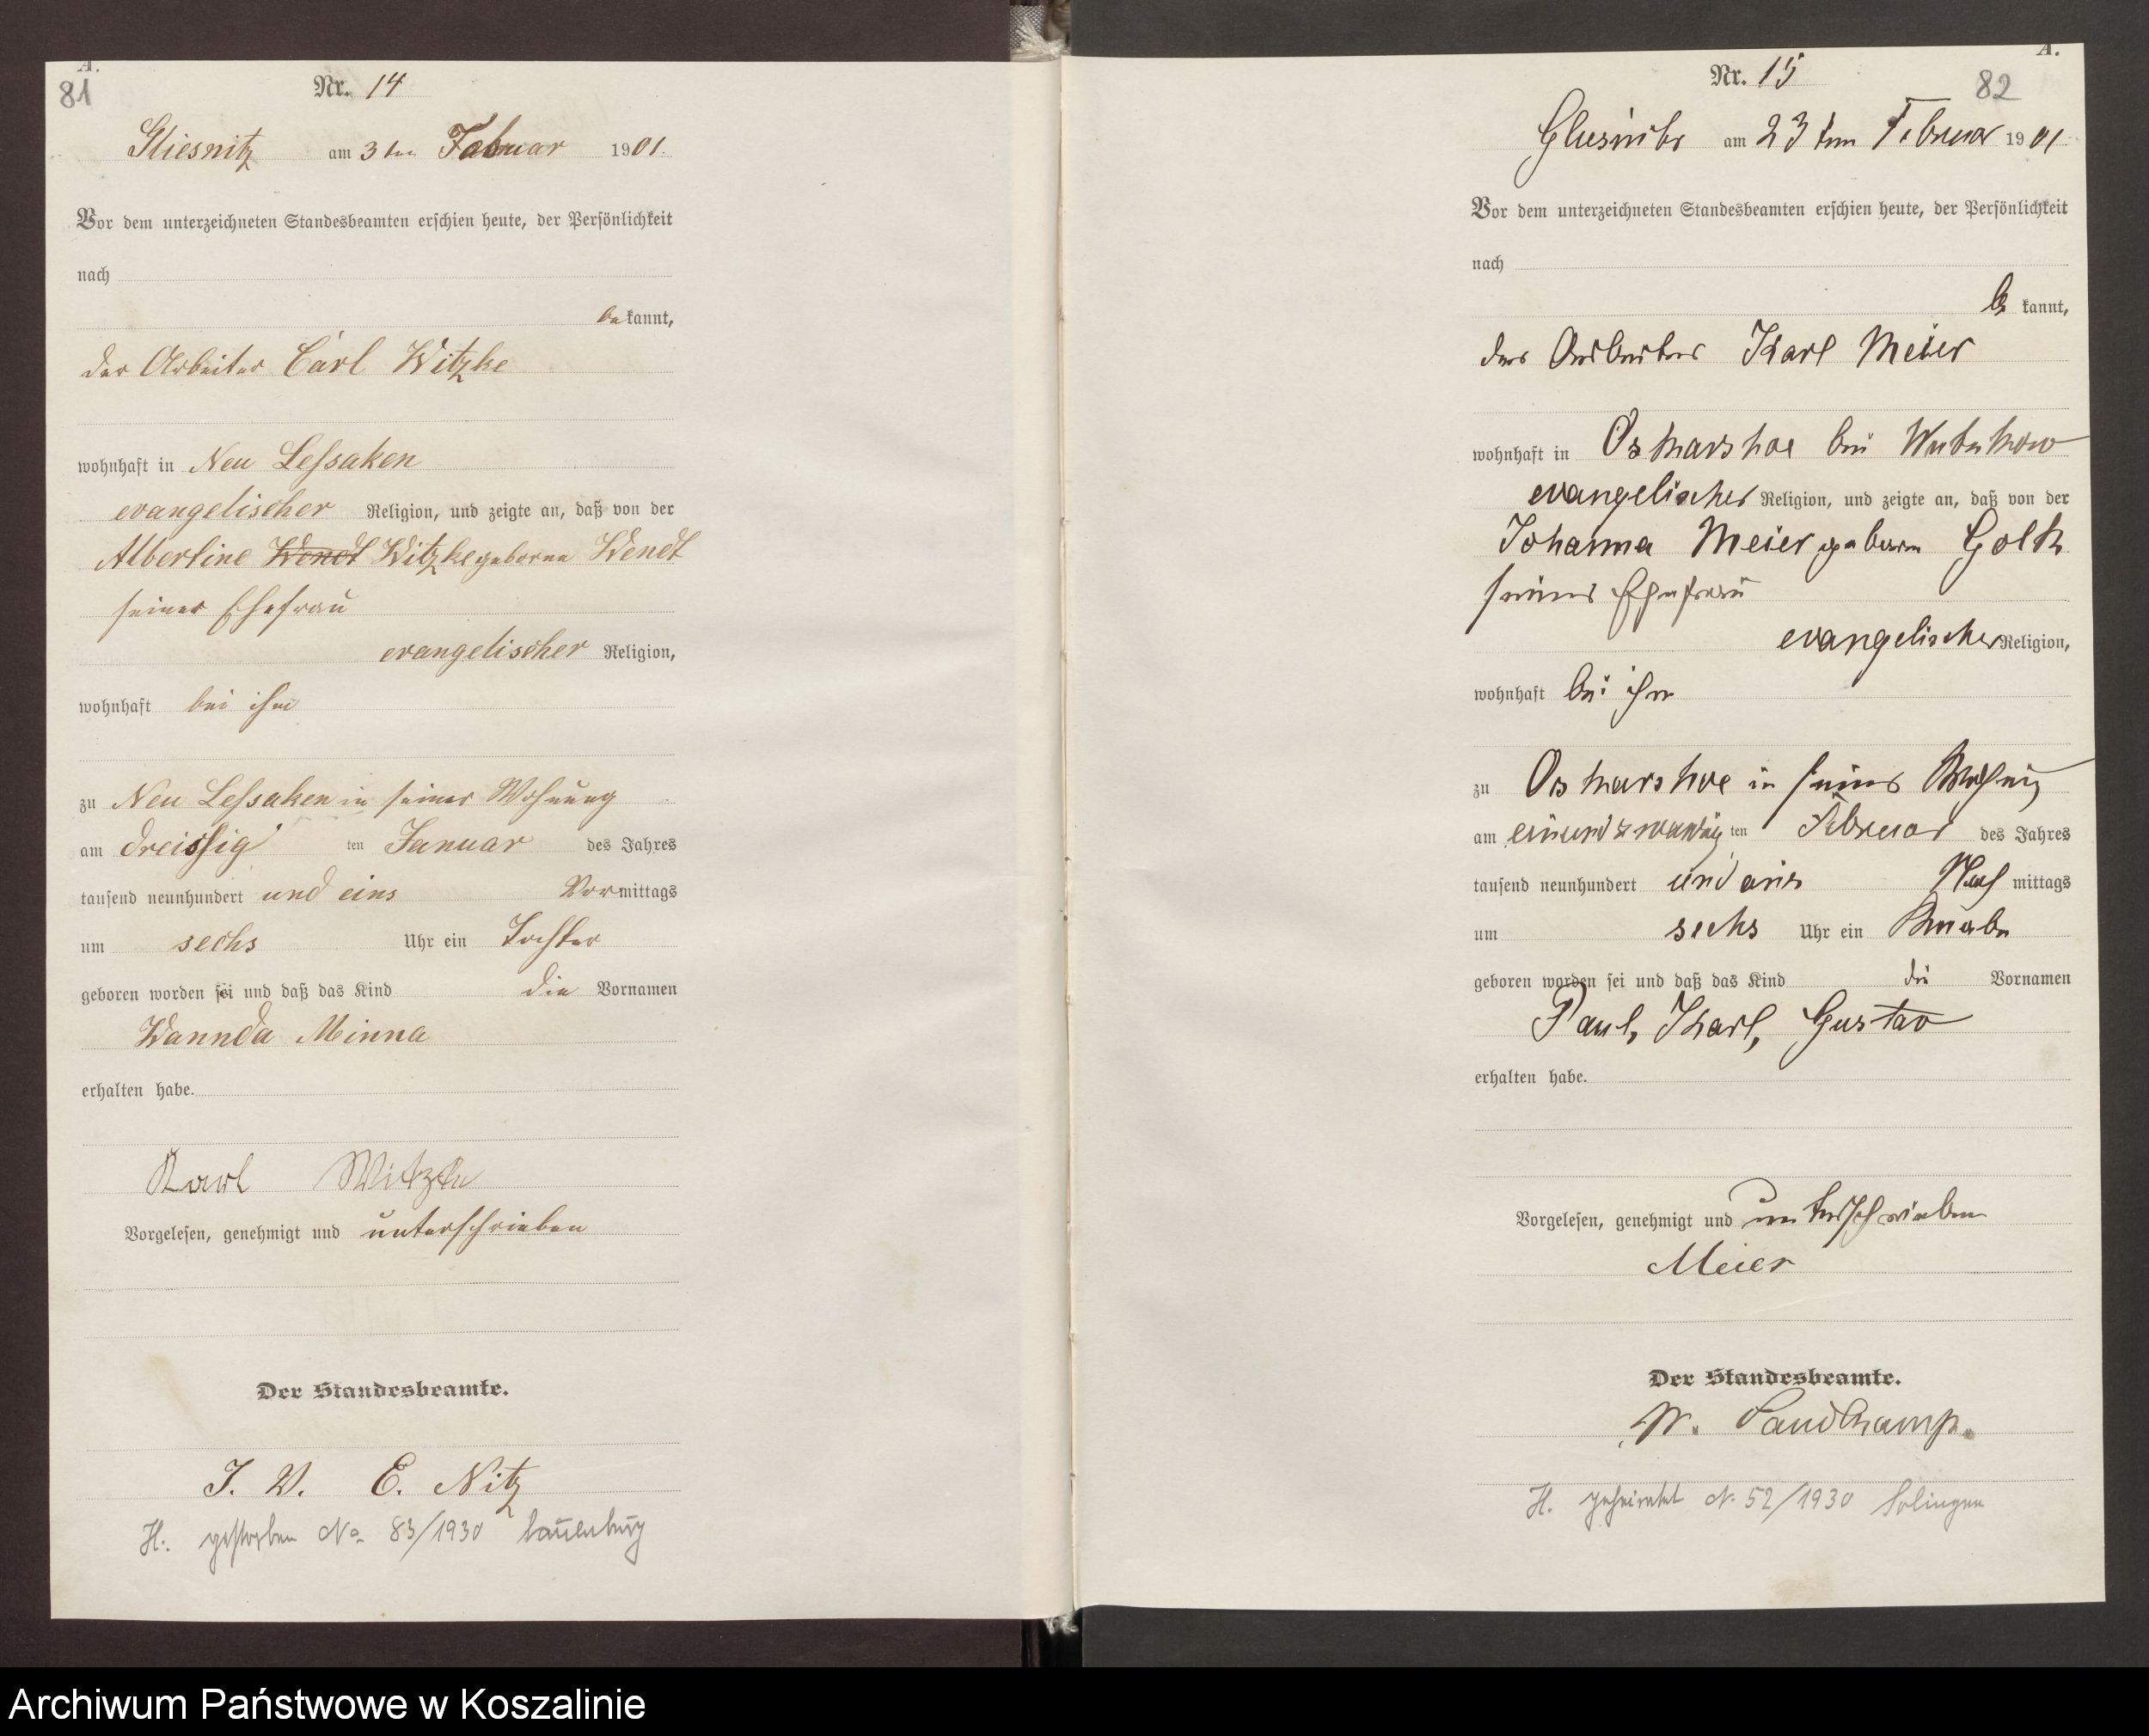 A.
81
Nr. 14
Gliesnitz am 3ten Februar 1901.
Vor dem unterzeichneten Standesbeamten erschien heute, der Persönlichkeit
nach
bekannt,
der Arbeiter Carl Witzke
wohnhaft in Neu Lessaken
evangelischer Religion, und zeigte an, daß von der
Albertine Wendt Witzke geborne Wendt
seiner Ehefrau
evangelischer Religion,
wohnhaft bei ihm
zu Neu Lessaken in seiner Wohnung
am dreissig ten Januar des Jahres
tausend neunhundert und eins Vormittags
um sechs Uhr ein Tochter
geboren worden sei und daß das Kind die Vornamen
Wannda Minna
erhalten habe.
Karl Witzke
Vorgelesen, genehmigt und unterschrieben
Der Standesbeamte.
J. V. E. Nitz
H. gestorben No 83/1930 Lauenburg
A.
Nr. 15
82
am 23ten Februar 1901
Vor dem unterzeichneten Standesbeamten erschien heute, der Persönlichkeit
nach
be kannt,
der Arbeiter Karl Meier
wohnhaft in bei
evangelischer Religion, und zeigte an, daß von der
Johanna Meier geboren
seiner Ehefrau
evangelischer Religion,
wohnhaft bei ihm
zu in seiner Wohnung
am einundzwanzig ten Februar des Jahres
tausend neunhundert und eins Nach mittags
um sechs Uhr ein Knabe
geboren worden sei und daß das Kind die Vornamen
Paul, Karl, Gustav
erhalten habe.
Vorgelesen, genehmigt und unterschrieben
Meier
Der Standesbeamte.
W. Sandkamp.
H. geheiratet N. 52/1930 Solingen
Archiwum Państwowe w Koszalinie